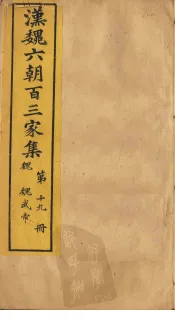 漢魏六朝百三家集
魏 魏武帝
第十九冊